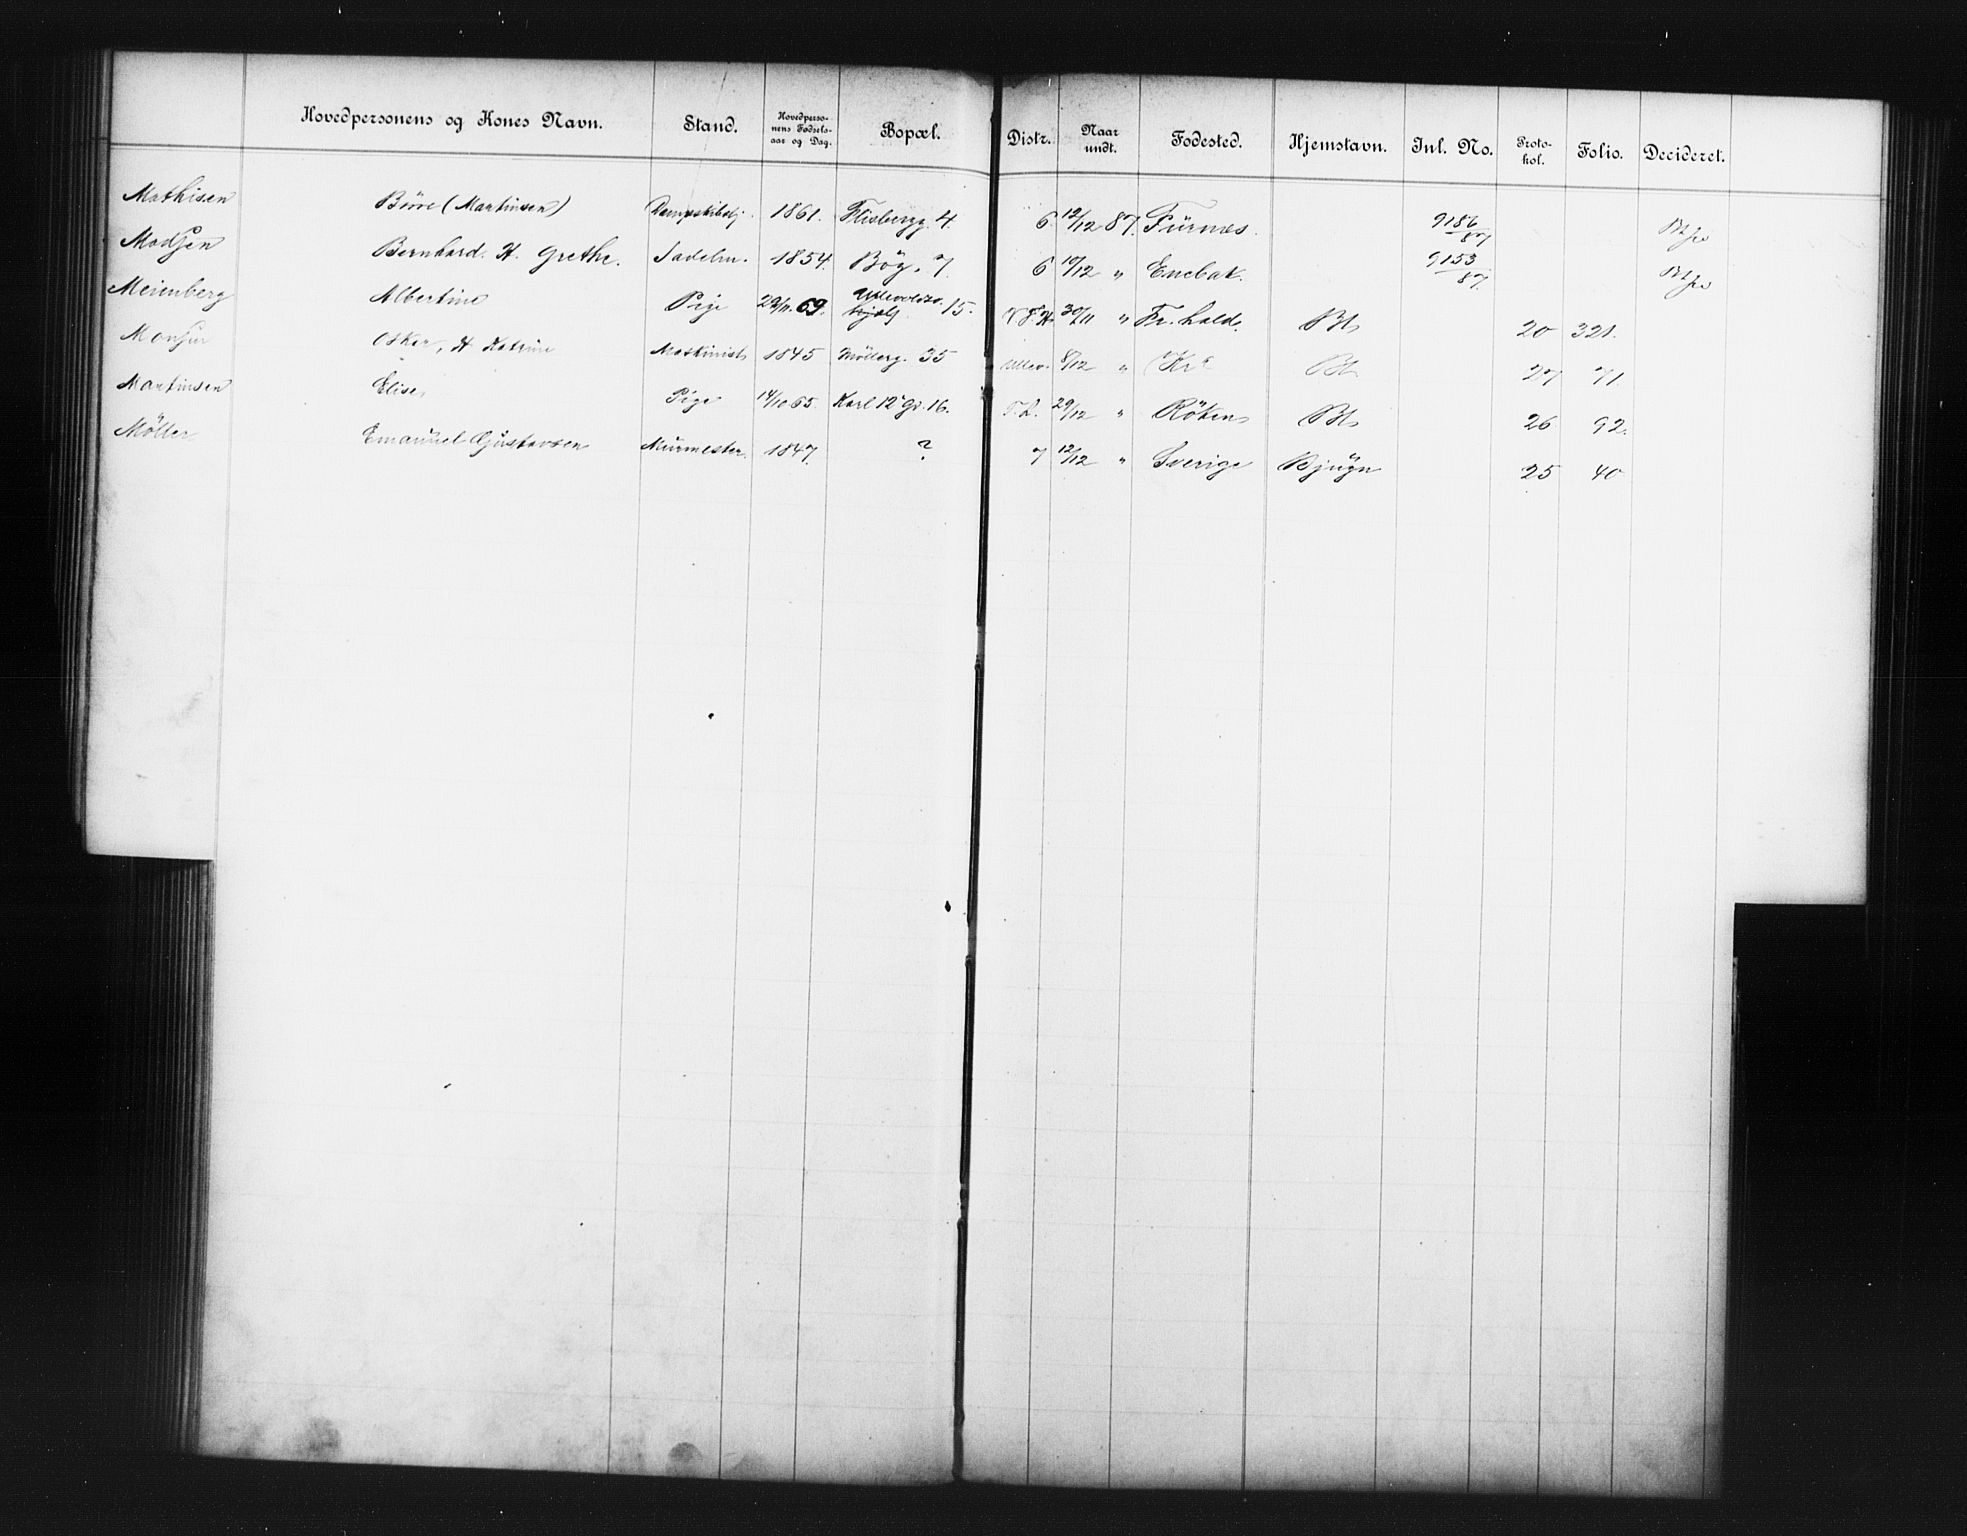 Hovedpersonens og Kones Navn. Stand. Hovedperso-nens Fødsels-aar og Dag. Bopæl. Distr. Naar undt. Fødested. Hjemstavn. Inl. No. Proto-kol. Folio. Decideret.
Mathisen Börre (Martinsen) 1861. Flisbergg. 4. 6 12/12 87. Furnes. 9186/87
Bernhard. H. Grethe. Sadelm. 1854. Bög. 7. 6 10/12 " Enebak. 9153/87.
Meienberg Albertine Pige 29/11. 69. Ullevoldsv. 15. 30/11 " Fr.hald. Bt 20 321.
Oskar, H. Katrine Maskinist 1845 Möllerg. 35 Ullev. 8/12 " Kra Bt 27 71
Martinsen Elise Pige 14/10 65. Karl 12 Gd. 16. 29/12 " Röken Bt 26 92.
Möller Emanuel Gustavsen Murmester. 1847. ? 7 12/12 " Sverige Bjugn 25 40